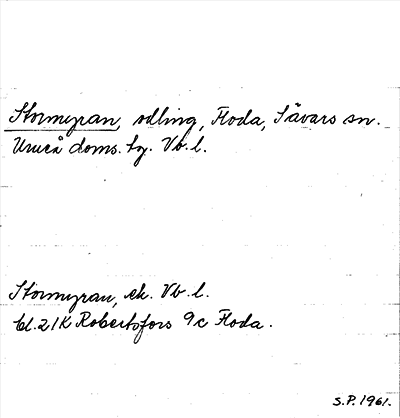 Stormyran, odling, Floda, Sävars sn.
Umeå doms. tg. Vb. l.
Stormyran, ek. Vb. l.
bl. 21K Robertsfors 9c Floda.
S.P. 1961.